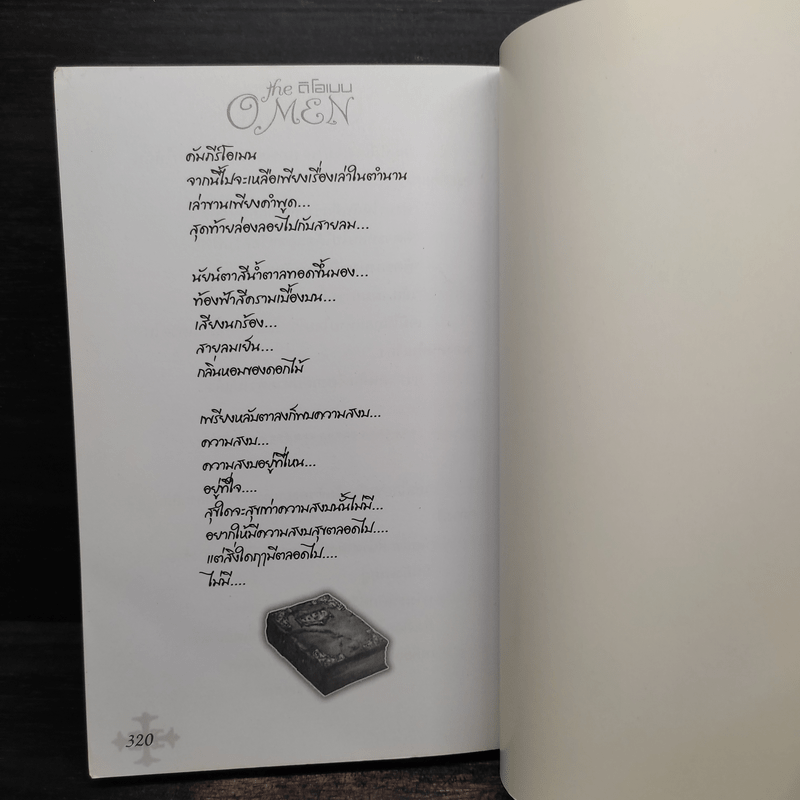 the ดิโอเมน
OMEN
คัมภีร์โอเมน
จากนี้ไปจะเหลือเพียงเรื่องเล่าในตำนาน
เล่าขานเพียงคำพูด...
สุดท้ายล่องลอยไปกับสายลม...
นัยน์ตาสีน้ำตาลทอดขึ้นมอง...
ท้องฟ้าสีครามเบื้องบน...
เสียงนกร้อง...
สายลมเย็น...
กลิ่นหอมของดอกไม้
เพรียงหลับตาลงก็พบความสงบ...
ความสงบ...
ความสงบอยู่ที่ไหน...
อยู่ที่ใจ....
สุขใดจะสุขเท่าความสงบนั้นไม่มี...
อยากให้มีความสงบสุขตลอดไป....
แต่สิ่งใดฤๅมีตลอดไป....
ไม่มี....
320